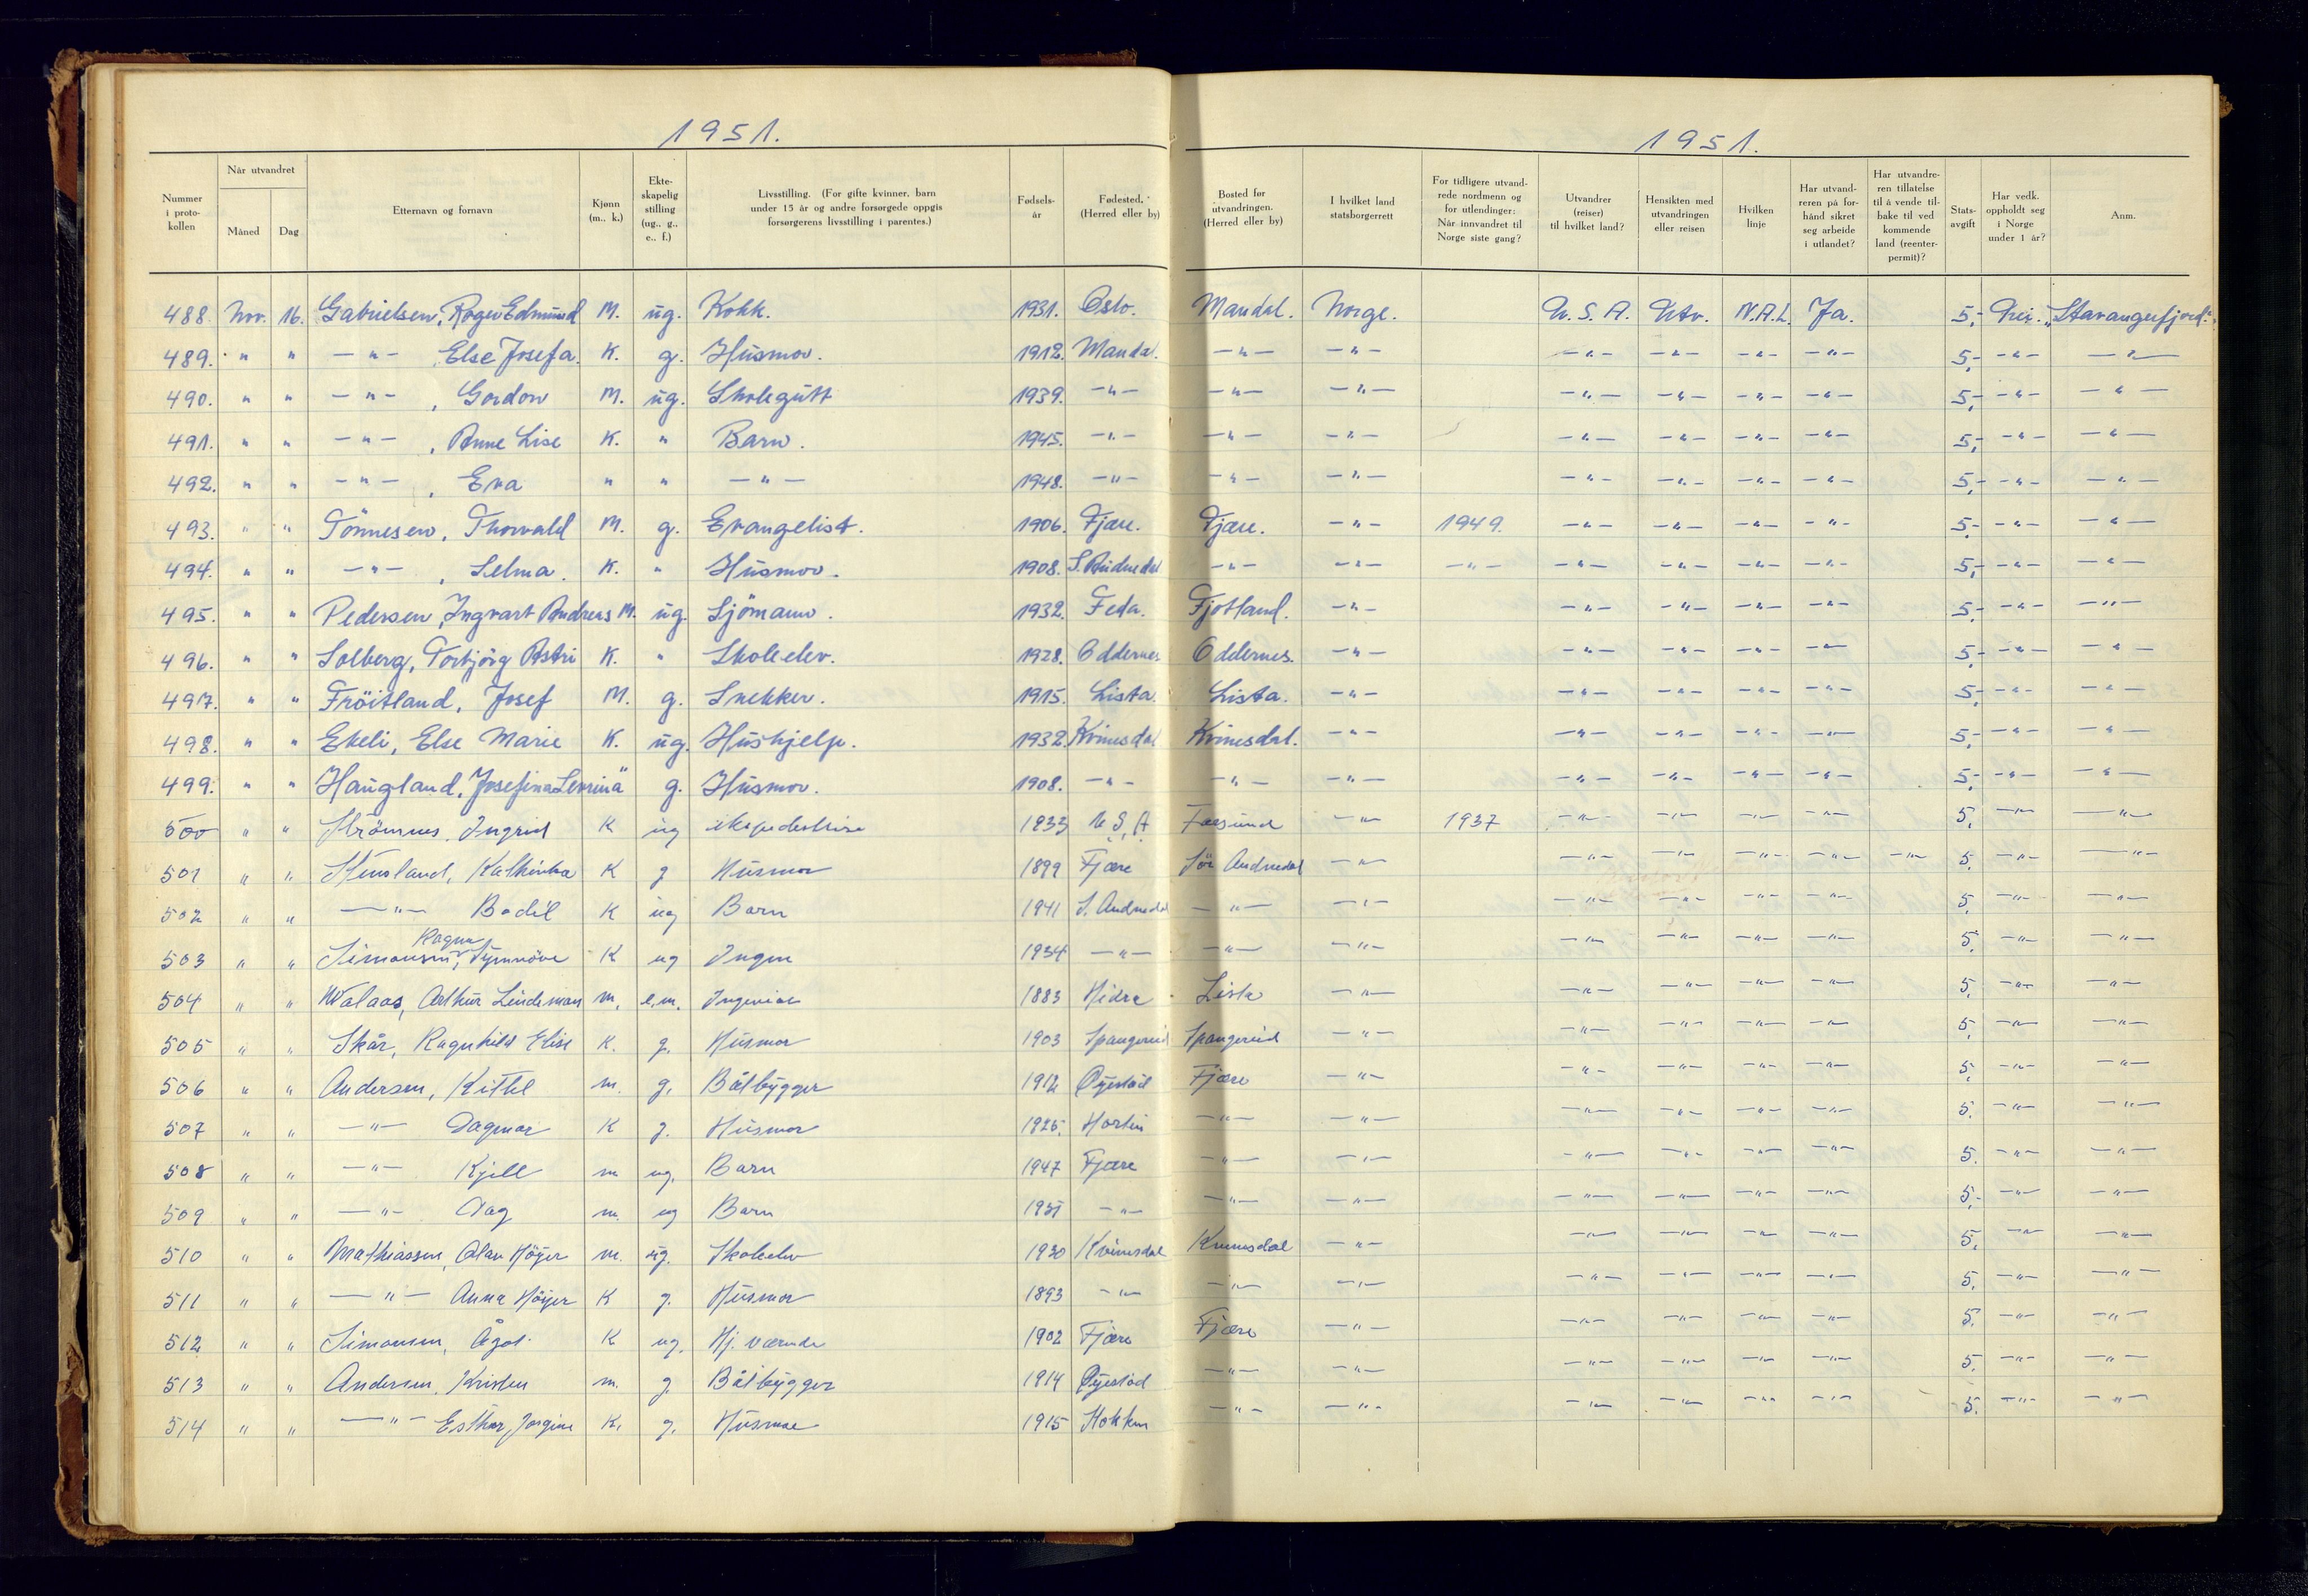 1951.
1951.
Nummer i protokollen
Når utvandret
Måned
Dag
Etternavn og fornavn
Kjønn (m., k.)
Ekteskapelig stilling (ug., g., e., f.)
Livsstilling. (For gifte kvinner, barn under 15 år og andre forsørgede oppgis forsørgerens livsstilling i parentes.)
Fødselsår
Fødested. (Herred eller by)
Bosted før utvandringen. (Herred eller by)
I hvilket land statsborgerrett
For tidligere utvandrede nordmenn og for utlendinger: Når innvandret til Norge siste gang?
Utvandrer (reiser) til hvilket land?
Hensikten med utvandringen eller reisen
Hvilken linje
Har utvandreren på forhånd sikret seg arbeide i utlandet?
Har utvandreren tillatelse til å vende tilbake til vedkommende land (reenterpermit)?
Statsavgift
Har vedk. oppholdt seg i Norge under 1 år?
Anm.
488. Nov. 16. Gabrielsen, Roger Edmund M. ug. Kokk. 1931. Oslo. Mandal. Norge. U.S.A. Utv. N.A.L. Ja. 5,- Nei. "Stavangerfjord".
489. " " -"- , Else Josefa. K. g. Husmor. 1912. Mandal. -"- -"- -"- -"- -"- -"- 5,- -"- -"-
490. " " -"- , Gordon M. ug. Skolegutt 1939. -"- -"- -"- -"- -"- -"- -"- 5,- -"- -"-
491. " " -"- , Anne Lise K. " Barn. 1945. -"- -"- -"- -"- -"- -"- -"- 5,- -"- -"-
492. " " -"- , Eva " " -"- 1948. -"- -"- -"- -"- -"- -"- -"- 5,- -"- -"-
493. " " Tönnesen, Thorvald M. g. Evangelist. 1906. Fjære. Fjære. -"- 1949. -"- -"- -"- -"- 5,- -"- -"-
494. " " -"- , Selma. K. " Husmor. 1908. S. Audnedal -"- -"- -"- -"- -"- -"- -"- 5,- -"- -"-
495. " " Pedersen, Ingvart Andreas M. ug. Sjömann. 1932. Feda. Fjotland. -"- -"- -"- -"- -"- 5,- -"- -"-
496. " " Solberg, Torbjörg Astri K. " Skoleelev. 1928. Oddernes Oddernes. -"- -"- -"- -"- -"- 5,- -"- -"-
497. " " Fröitland, Josef M. g. Snekker. 1915. Lista. Lista. -"- -"- -"- -"- -"- 5,- -"- -"-
498. " " Ekeli, Else Marie K. ug. Hushjelp. 1932. Kvinesdal Kvinesdal. -"- -"- -"- -"- -"- 5,- -"- -"-
499. " " Haugland, Josefina Levrina " g. Husmor. 1908. -"- -"- -"- -"- -"- -"- -"- 5,- -"- -"-
500 " " Strömnes, Ingrid K ug ekspeditrise 1933 U.S.A Farsund -"- 1937 -"- -"- -"- -"- 5,- -"- -"-
501 " " Stensland, Kathinka K g Husmor 1899 Fjære Sör Audnedal -"- -"- -"- -"- -"- -"- 5, -"- -"-
502 " " -"- Bodil K ug Barn 1941 S. Audnedal -"- -"- -"- -"- -"- -"- 5, -"- -"-
503 " " Simonsen, Ragna Synnöve K ug Ingen 1934 -"- -"- -"- -"- -"- -"- -"- 5, -"- -"-
504 " " Walaas, Arthur Lindeman m. e.m. Ingeniör 1883 Hidra Lista -"- -"- -"- -"- -"- 5, -"- -"-
505 " " Skår, Ragnhild Elise K. g. Husmor 1903 Spangereid Spangereid -"- -"- -"- -"- -"- 5, -"- -"-
506 " " Andersen, Kittel m. g. Båtbygger 1912 Øyestad Fjære -"- -"- -"- -"- -"- 5, -"- -"-
507 " " -"- Dagmar K g. Husmor 1925. -"- -"- -"- -"- -"- -"- 5. -"- -"-
508 " " -"- Kjell m ug. Barn 1947 Fjære -"- -"- -"- -"- -"- -"- 5. -"- -"-
509 " " -"- Dag m. ug Barn 1951 -"- -"- -"- -"- -"- -"- -"- 5,- -"- -"-
510 " " Mathiassen, Olav Höyer m. ug. Skoleelev 1930 Kvinesdal Kvinesdal -"- -"- -"- -"- -"- 5, -"- -"-
511 " " -"- Anna Höyer K g. Husmor 1893 -"- -"- -"- -"- -"- -"- -"- 5, -"- -"-
512 " " Simonsen, Ågot K ug. Hj. værende 1902 Fjære Fjære -"- -"- -"- -"- -"- 5, -"- -"-
513 " " Andersen, Kristen m. g Båtbygger 1914 Øyestad -"- -"- -"- -"- -"- -"- 5. -"- -"-
514 " " -"- Esther Jorgine K. g. Husmor 1915 -"- -"- -"- -"- -"- -"- 5. -"- -"-